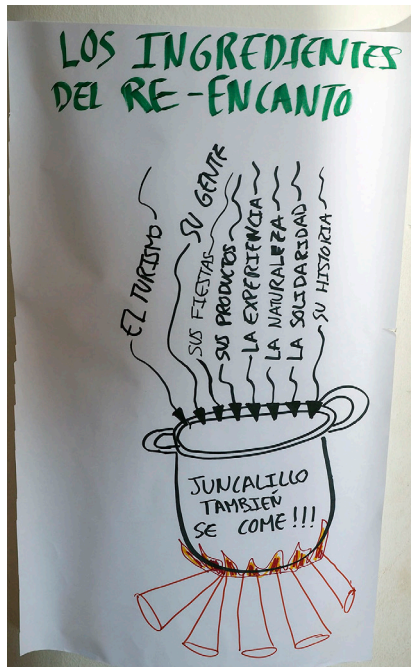 LOS INGREDIENTES
DEL RE-ENCANTO
EL TURISMO
SU GENTE
SUS FIESTAS
SUS PRODUCTOS
LA EXPERIENCIA
LA NATURALEZA
LA SOLIDARIDAD
SU HISTORIA
JUNCALILLO
TAMBIÉN
SE COME!!!